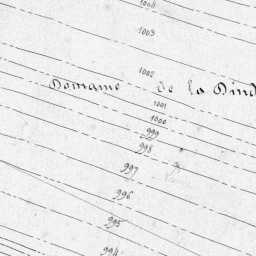 1004
1003
1002
Domaine de la Dind
1001
1000
999
998
997
996
995
994